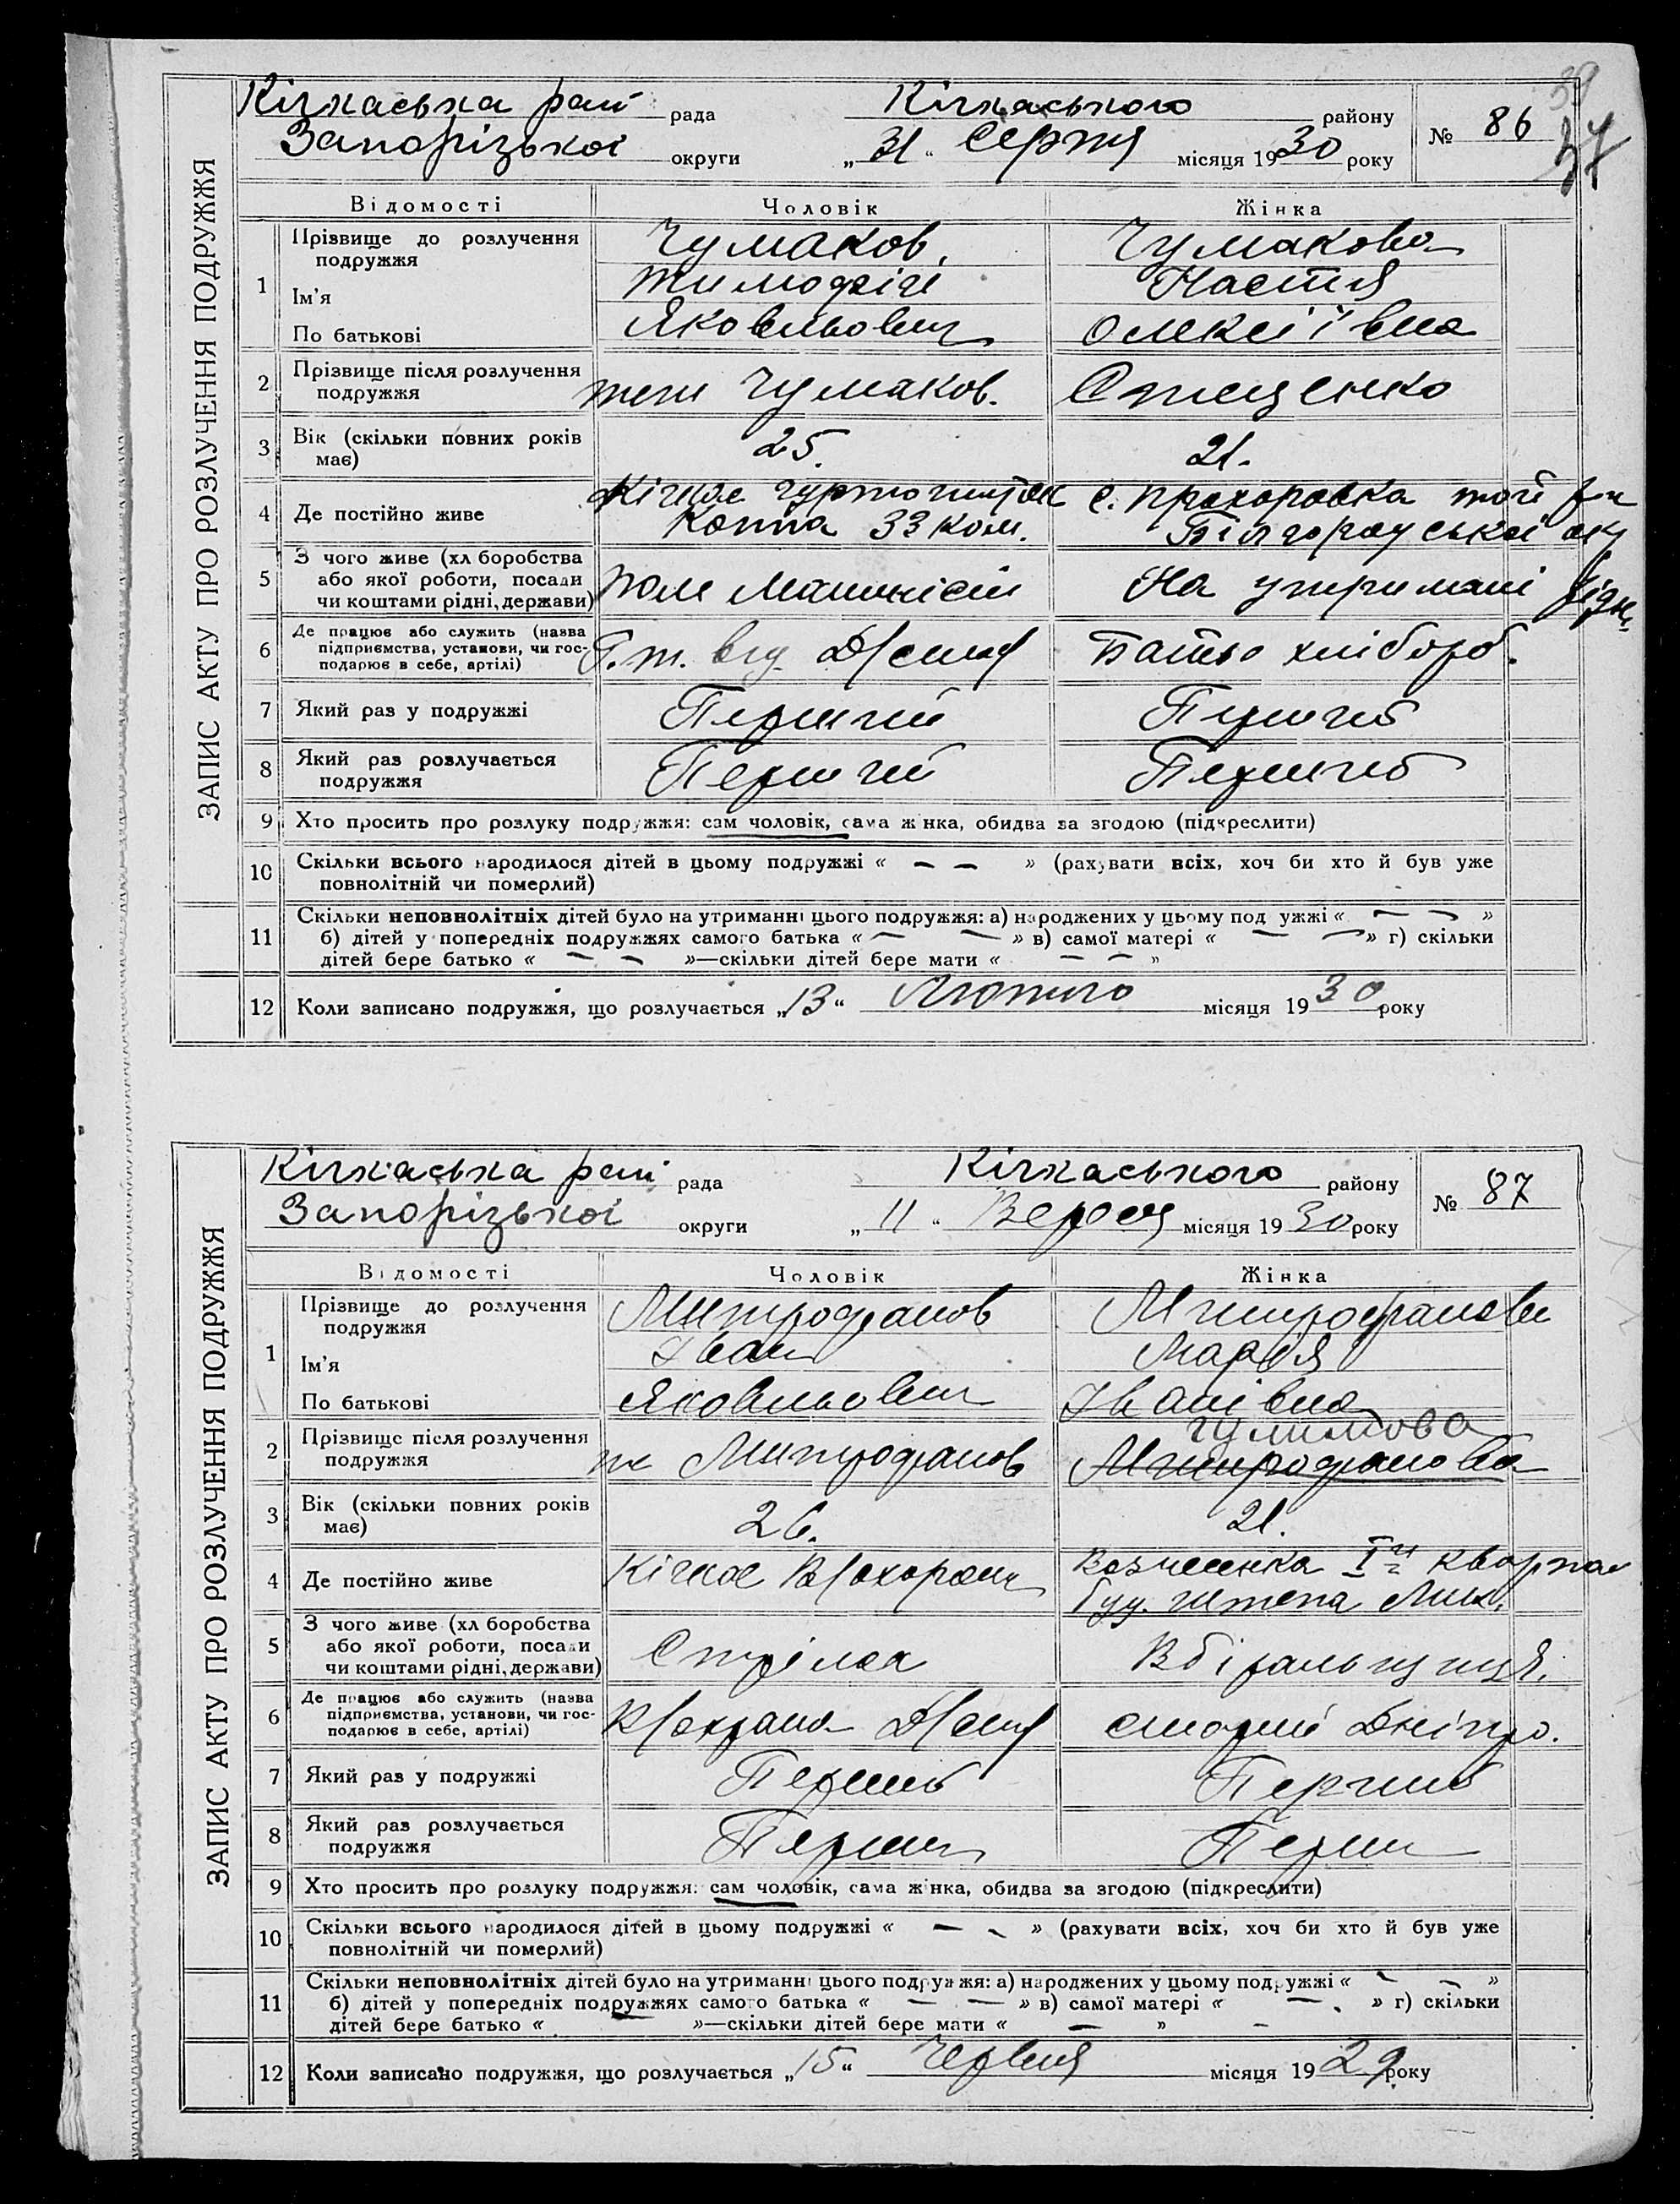 39
37
ЗАПИС АКТУ ПРО РОЗЛУЧЕННЯ ПОДРУЖЖЯ
Кічкаська рай рада Кічкаського району № 86
Запорізької округи „31“ Серпня місяця 1930 року
Відомості Чоловік Жінка
1 Прізвище до розлучення подружжя Чумаков Чумакова
Ім'я Тимофій Настя
По батькові Яковльович Олексіївна
2 Прізвище після розлучення подружжя теж Чумаков. Стеценко
3 Вік (скільки повних років має) 25. 21.
4 Де постійно живе Кічкас гуртожиток с. Прохоровка
Коппа 33 ком. Білгородської окр
5 З чого живе (хл боробства або якої роботи, посади чи коштами рідні, держави) Пом Машиніст На утримані
6 Де працює або служить (назва підприємства, установи, чи господарює в себе, артілі) Батько хлібороб.
7 Який раз у подружжі Перший Перший
8 Який раз розлучається подружжя Перший Перший
9 Хто просить про розлуку подружжя: сам чоловік, сама жінка, обидва за згодою (підкреслити)
10 Скільки всього народилося дітей в цьому подружжі « — — » (рахувати всіх, хоч би хто й був уже
повнолітній чи померлий)
11 Скільки неповнолітніх дітей було на утриманні цього подружжя: а) народжених у цьому подружжі « — — »
б) дітей у попередніх подружжях самого батька « — — » в) самої матері « — — » г) скільки
дітей бере батько « — — »—скільки дітей бере мати « — — »
12 Коли записано подружжя, що розлучається „13“ Лютого місяця 1930 року
ЗАПИС АКТУ ПРО РОЗЛУЧЕННЯ ПОДРУЖЖЯ
Кічкаська рай рада Кічкаського району № 87
Запорізької округи „11“ Вересня місяця 1930 року
Відомості Чоловік Жінка
1 Прізвище до розлучення подружжя Митрофанов Митрофанова
Ім'я Іван Марія
По батькові Яковльович Іванівна
2 Прізвище після розлучення подружжя Митрофанов Митрофанова
3 Вік (скільки повних років має) 26. 21.
4 Де постійно живе Кічкас Вознесенка
5 З чого живе (хл боробства або якої роботи, посади чи коштами рідні, держави) Стрілок Вбіральщиця.
6 Де працює або служить (назва підприємства, установи, чи господарює в себе, артілі) старий Дніпро.
7 Який раз у подружжі Перший Перший
8 Який раз розлучається подружжя Перший Перший
9 Хто просить про розлуку подружжя: сам чоловік, сама жінка, обидва за згодою (підкреслити)
10 Скільки всього народилося дітей в цьому подружжі « — — » (рахувати всіх, хоч би хто й був уже
повнолітній чи померлий)
11 Скільки неповнолітніх дітей було на утриманні цього подружжя: а) народжених у цьому подружжі « — — »
б) дітей у попередніх подружжях самого батька « — — » в) самої матері « — » г) скільки
дітей бере батько « — »—скільки дітей бере мати « — » —
12 Коли записано подружжя, що розлучається „15“ Червня місяця 1929 року